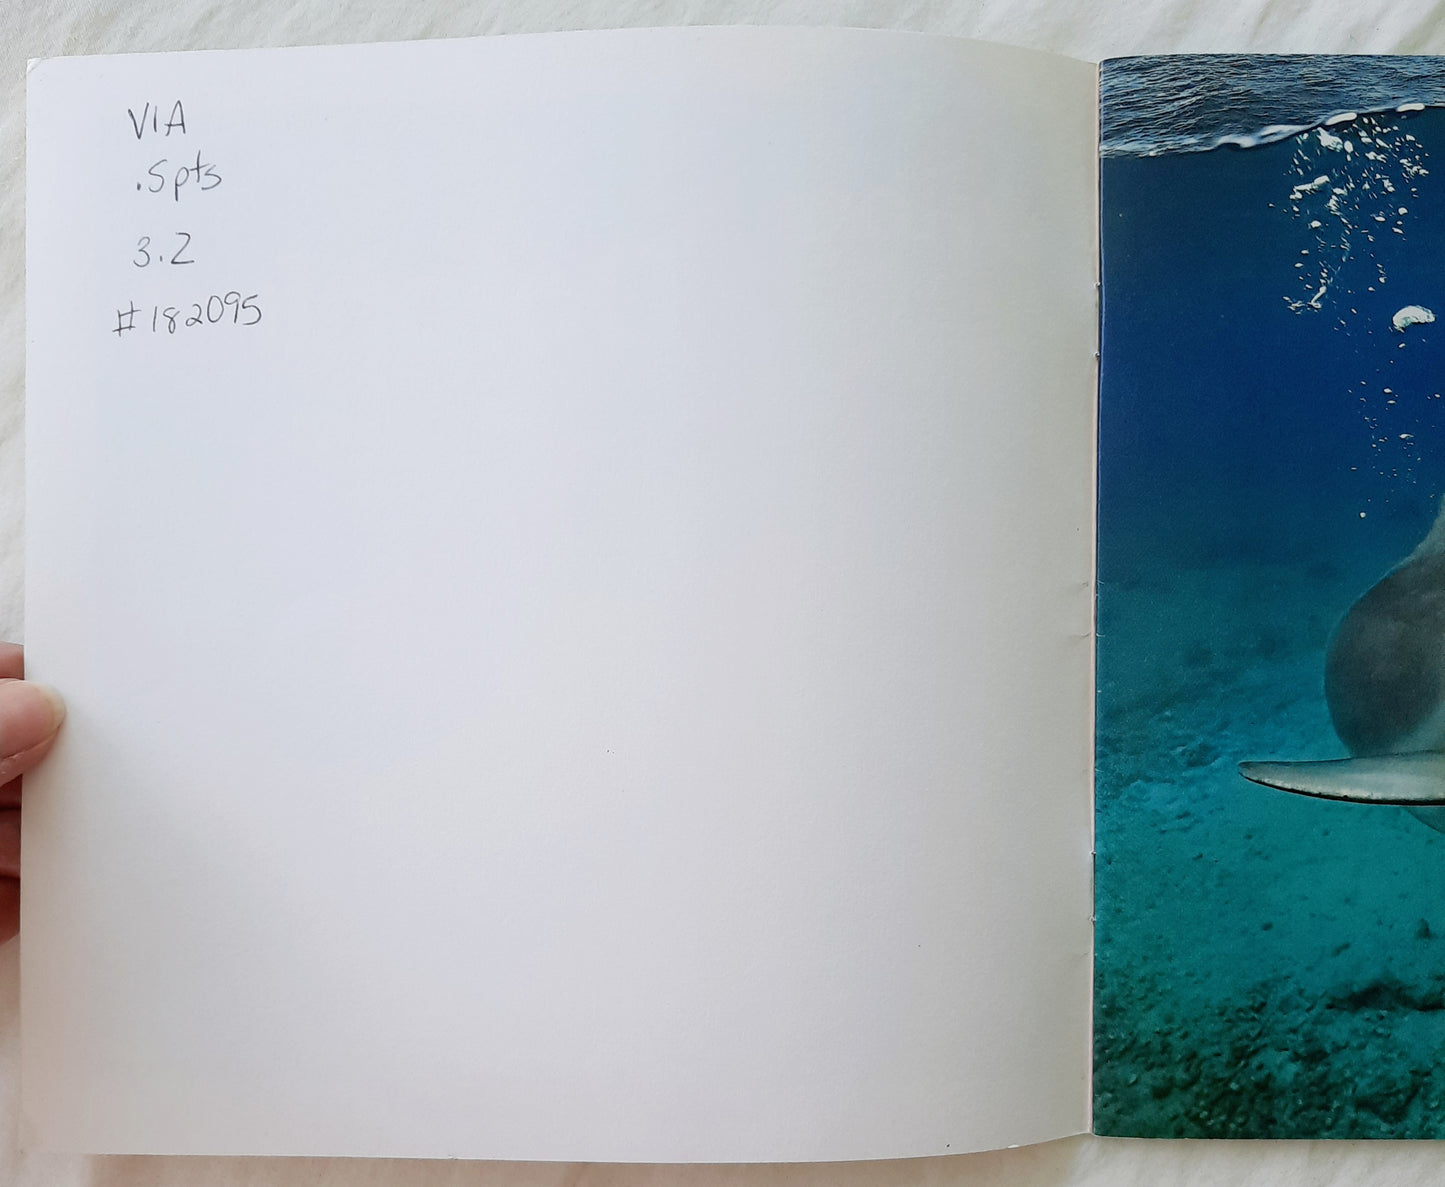 VIA
.5pts
3.2
#182095